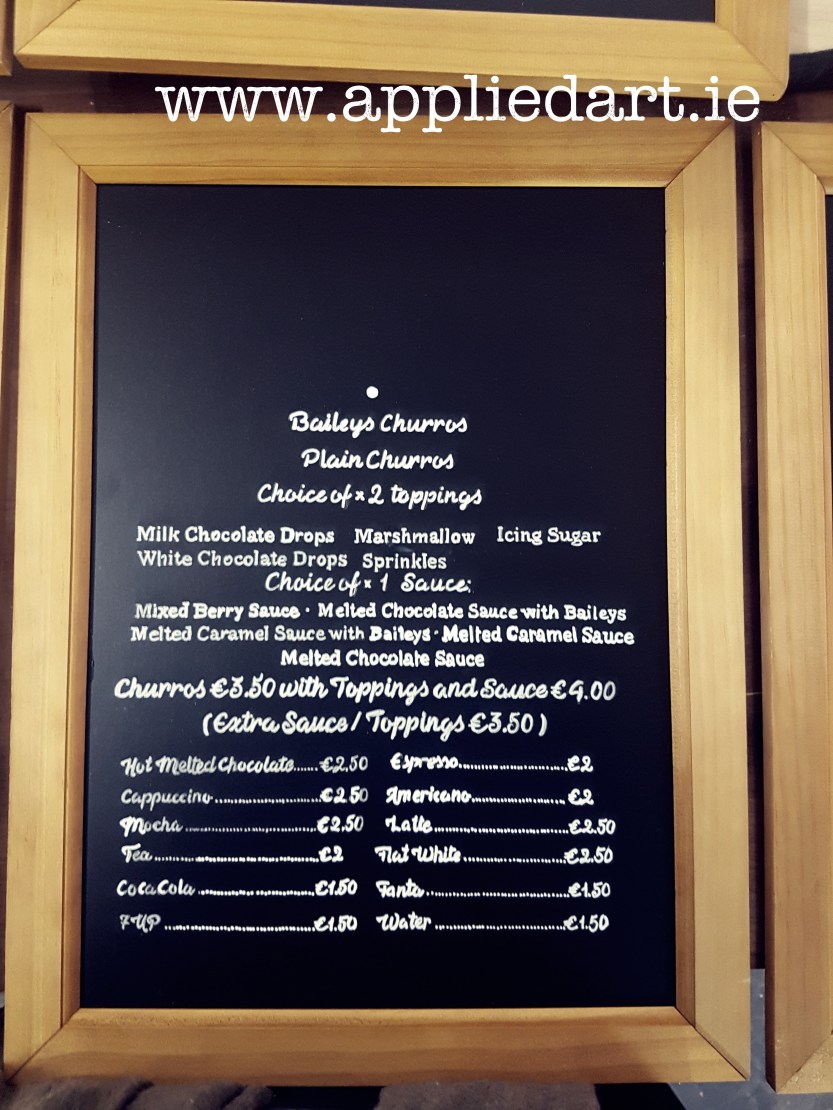 www.appliedart.ie
Baileys Churros
Plain Churros
Choice of x 2 toppings
Milk Chocolate Drops Marshmallow Icing Sugar
White Chocolate Drops Sprinkles
Choice of x 1 Sauce:
Mixed Berry Sauce · Melted Chocolate Sauce with Baileys
Melted Caramel Sauce with Baileys · Melted Caramel Sauce
Melted Chocolate Sauce
Churros €3.50 with Toppings and Sauce €4.00
(Extra Sauce / Toppings €3.50 )
Hot Melted Chocolate......€2.50 Espresso......................€2
Cappuccino....................€2.50 Americano...................€2
Mocha.........................€2.50 Latte...........................€2.50
Tea................................€2 Flat White....................€2.50
Coca Cola......................€1.50 Fanta............................€1.50
7UP..............................€1.50 Water..........................€1.50